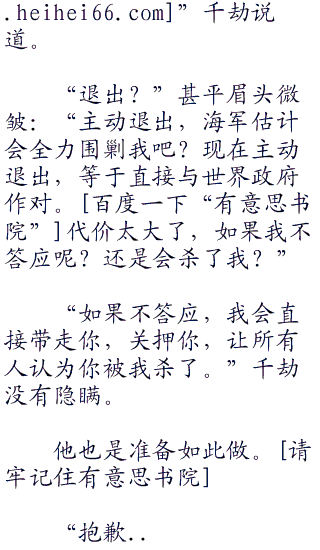 .heihei66.com]”千劫说
道。
“退出？”甚平眉头微
皱：“主动退出，海军估计
会全力围剿我吧？现在主动
退出，等于直接与世界政府
作对。[百度一下“有意思书
院”]代价太大了，如果我不
答应呢？还是会杀了我？”
“如果不答应，我会直
接带走你，关押你，让所有
人认为你被我杀了。”千劫
没有隐瞒。
他也是准备如此做。[请
牢记住有意思书院]
“抱歉..